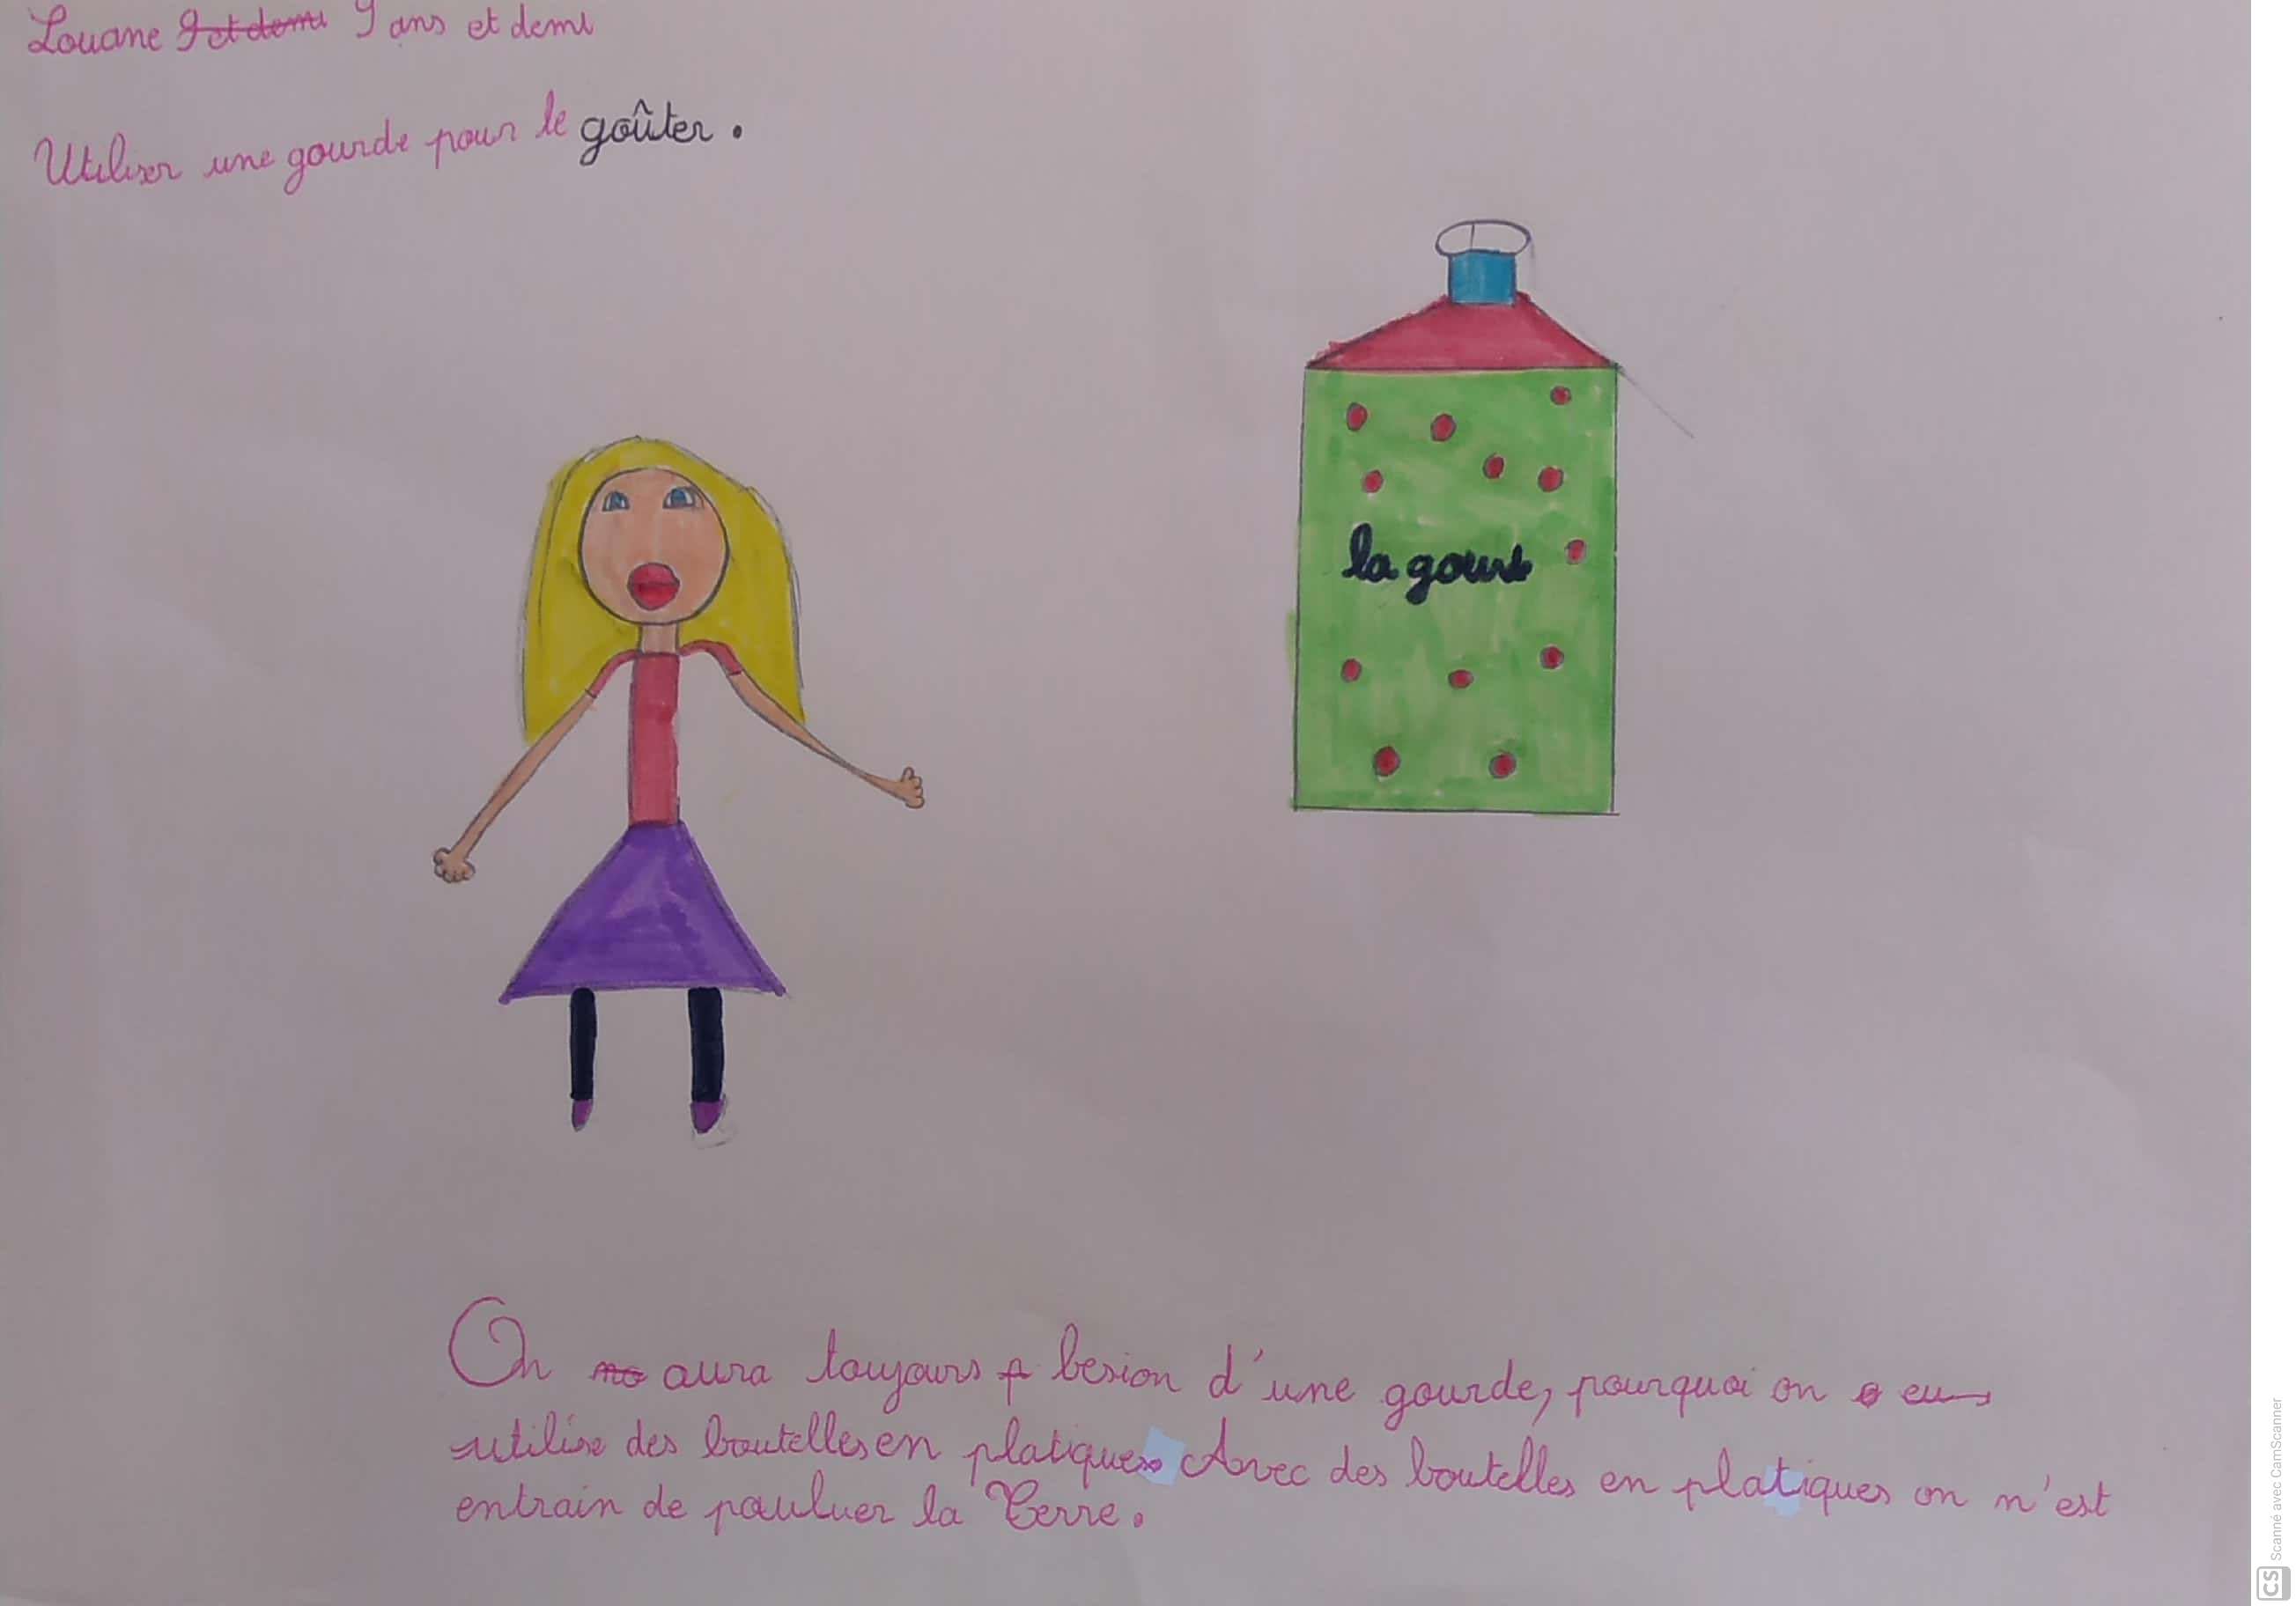 Louane 9 et demi 9 ans et demi
Utiliser une gourde pour le goûter.
la gourde
On aura toujours besion d'une gourde, pourquoi on
utilise des boutelles en platiques. Avec des boutelles en platiques on n'est
entrain de pauluer la Terre.
Scanné avec CamScanner
CS